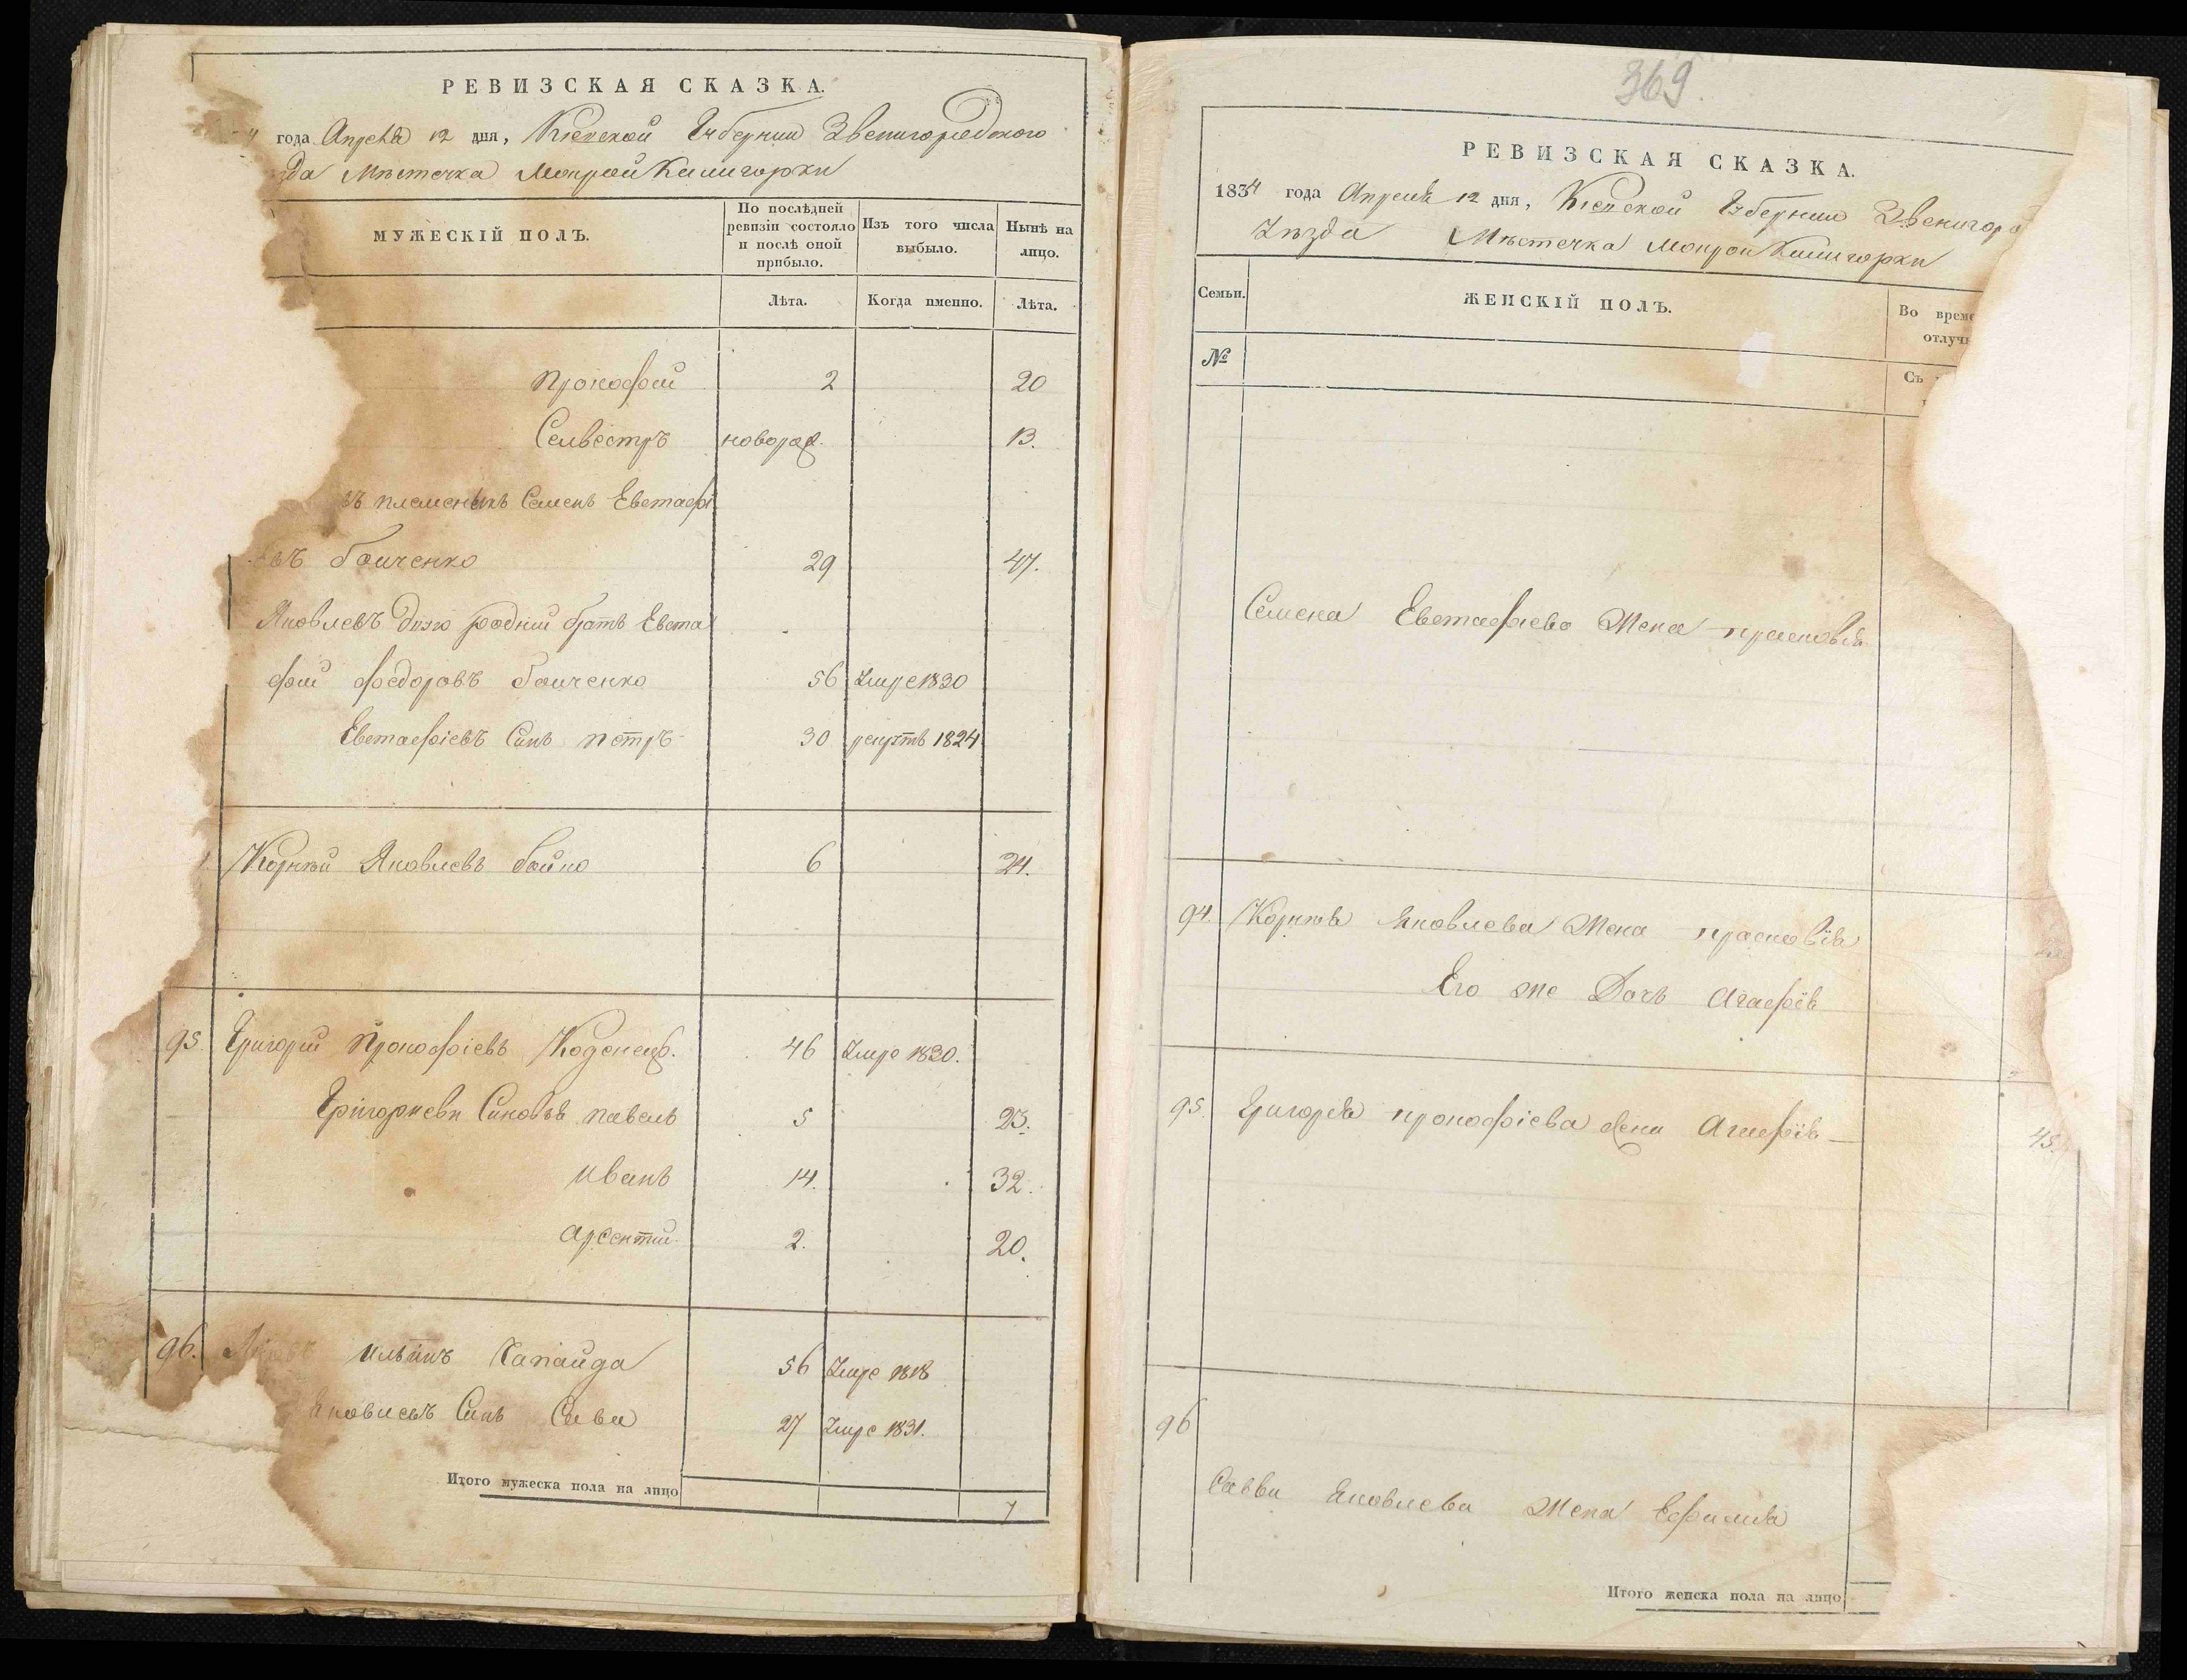 РЕВИЗСКАЯ СКАЗКА.
4 года Апреля 12 дня, Кіевской Губернии Звенигородского
зда Мѣстечка Мокрой Калигорки
МУЖЕСКІЙ ПОЛЪ.
По послѣдней ревизіи состояло и послѣ оной прибыло.
Изъ того числа выбыло.
Нынѣ на лицо.
Лѣта.
Когда именно.
Лѣта.
Прокофий 2 20
Селвестръ новорож. 13.
въ племенникъ Семенъ Евстафі
евъ Бойченко 29 47.
Яковлевъ родний братъ Евста
фий Федоровъ Бойченко 56 Умре 1830
Евстафіевъ Синъ Петръ 30 рекрутъ 1824
Корнѣй Яковлевъ Бойко 6 24.
95. Григорий Прокофіевъ 46 Умре 1830.
Григориеви Синовья Павелъ 5 23.
Иванъ 14. 32.
Арсентий 2. 20.
96. Ильинъ Капайда 56 Умре 1818
Яковлевъ Синъ Сава 27 Умре 1831.
Итого мужеска пола на лицо
7
369.
РЕВИЗСКАЯ СКАЗКА.
1834 года Апреля 12 дня, Кіевской Губернии Звенигоро
Уѣзда Мѣстечка Мокрой Калигорки
Семьи.
ЖЕНСКІЙ ПОЛЪ.
Во време
отлучк
№
Съ
Семена Евстафиева Жена Прасковія
94. Корнѣя Яковлева Жена Прасковія
Его же Дочь Агафія
95. Григорія Прокофіева Жена Агафія 45.
96
Савви Яковлева Жена Ефимия
Итого женска пола на лицо